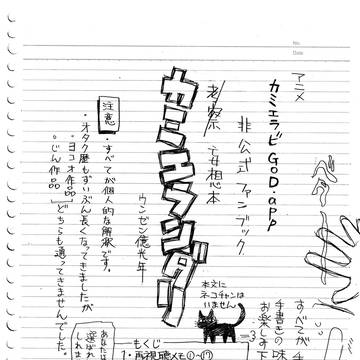 No.
Date
アニメ
カミエラビ GOD.app
非公式ファンブック
考察
妄想本
カミエランダリ
ウンゼン億光年
注意
・すべてが個人的な解釈です。
・オタク歴もずいぶん長くなってきましたが
「ヨコオ作品」
「じん作品」どちらも通ってきませんでした。
本文に
ネコチャンは
いません
すべてが手
手書きの味
お楽しみ下
あなたは
選ばれ
しれま
もくじ
1・再視聴メモ①〜⑰